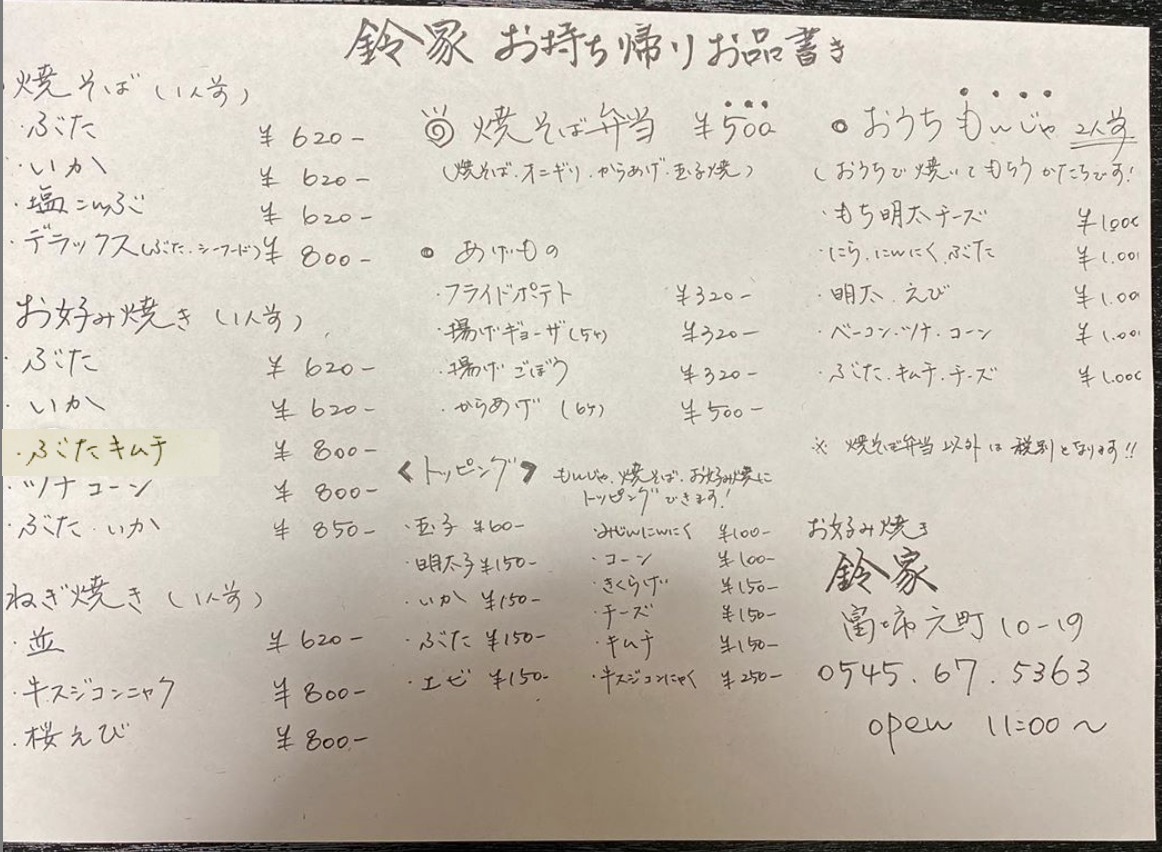 鈴家 お持ち帰りお品書き
・焼そば（1人前）
・ぶた ¥620-
・いか ¥620-
・塩こんぶ ¥620-
・デラックス(ぶた.シーフード) ¥800-
お好み焼き（1人前）
・ぶた ¥620-
・いか ¥620-
・ぶたキムチ ¥800-
・ツナコーン ¥800-
・ぶた.いか ¥850-
ねぎ焼き（1人前）
・並 ¥620-
・牛スジコンニャク ¥800-
・桜えび ¥800-
◎ 焼そば弁当 ¥500
(焼そば.オニギリ.からあげ.玉子焼)
● あげもの
・フライドポテト ¥320-
・揚げギョーザ(5ケ) ¥320-
・揚げごぼう ¥320-
・からあげ (6ケ) ¥500-
<トッピング> もんじゃ.焼そば.お好み焼に
トッピングできます!
・玉子 ¥60-
・明太子 ¥150-
・いか ¥150-
・ぶた ¥150-
・エビ ¥150-
・みじんにんにく ¥100-
・コーン ¥100-
・きくらげ ¥150-
・チーズ ¥150-
・キムチ ¥150-
・牛スジコンにゃく ¥250-
● おうちもんじゃ 2人前
(おうちで焼いてもらうかたちです!
・もち明太チーズ ¥1.000
・にら.にんにく.ぶた ¥1.000
・明太.えび ¥1.000
・ベーコン.ツナ.コーン ¥1.000
・ぶた.キムチ.チーズ ¥1.000
※ 焼そば弁当以外は税別となります!!
お好み焼き
鈴家
富士市元町10-19
0545.67.5363
open 11:00〜